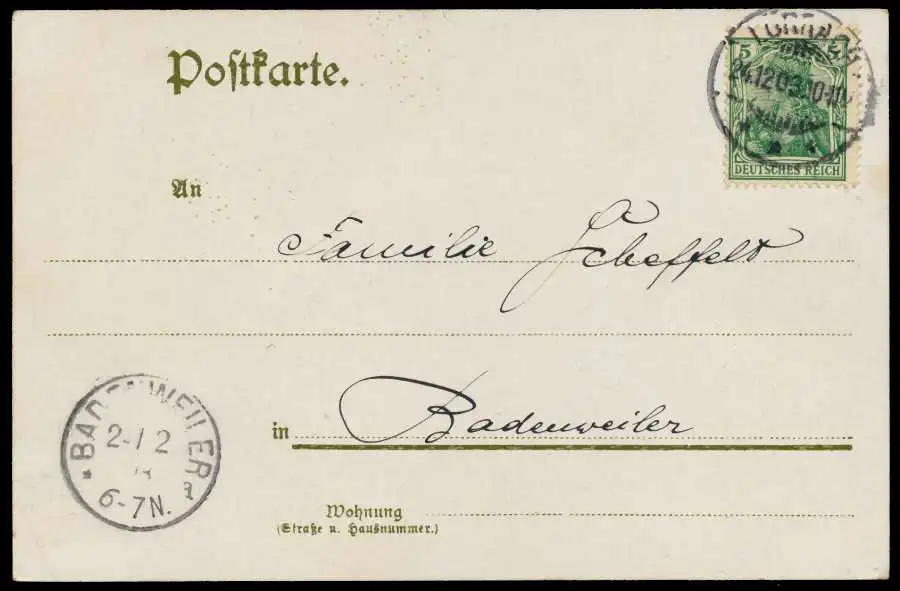 Postkarte.
5 5
LÖRRACH
24.12.03. 10-11
DEUTSCHES REICH
An
Familie Scheffelt
in Badenweiler
BADENWEILER
6-7N.
Wohnung
(Straße u. Hausnummer.)